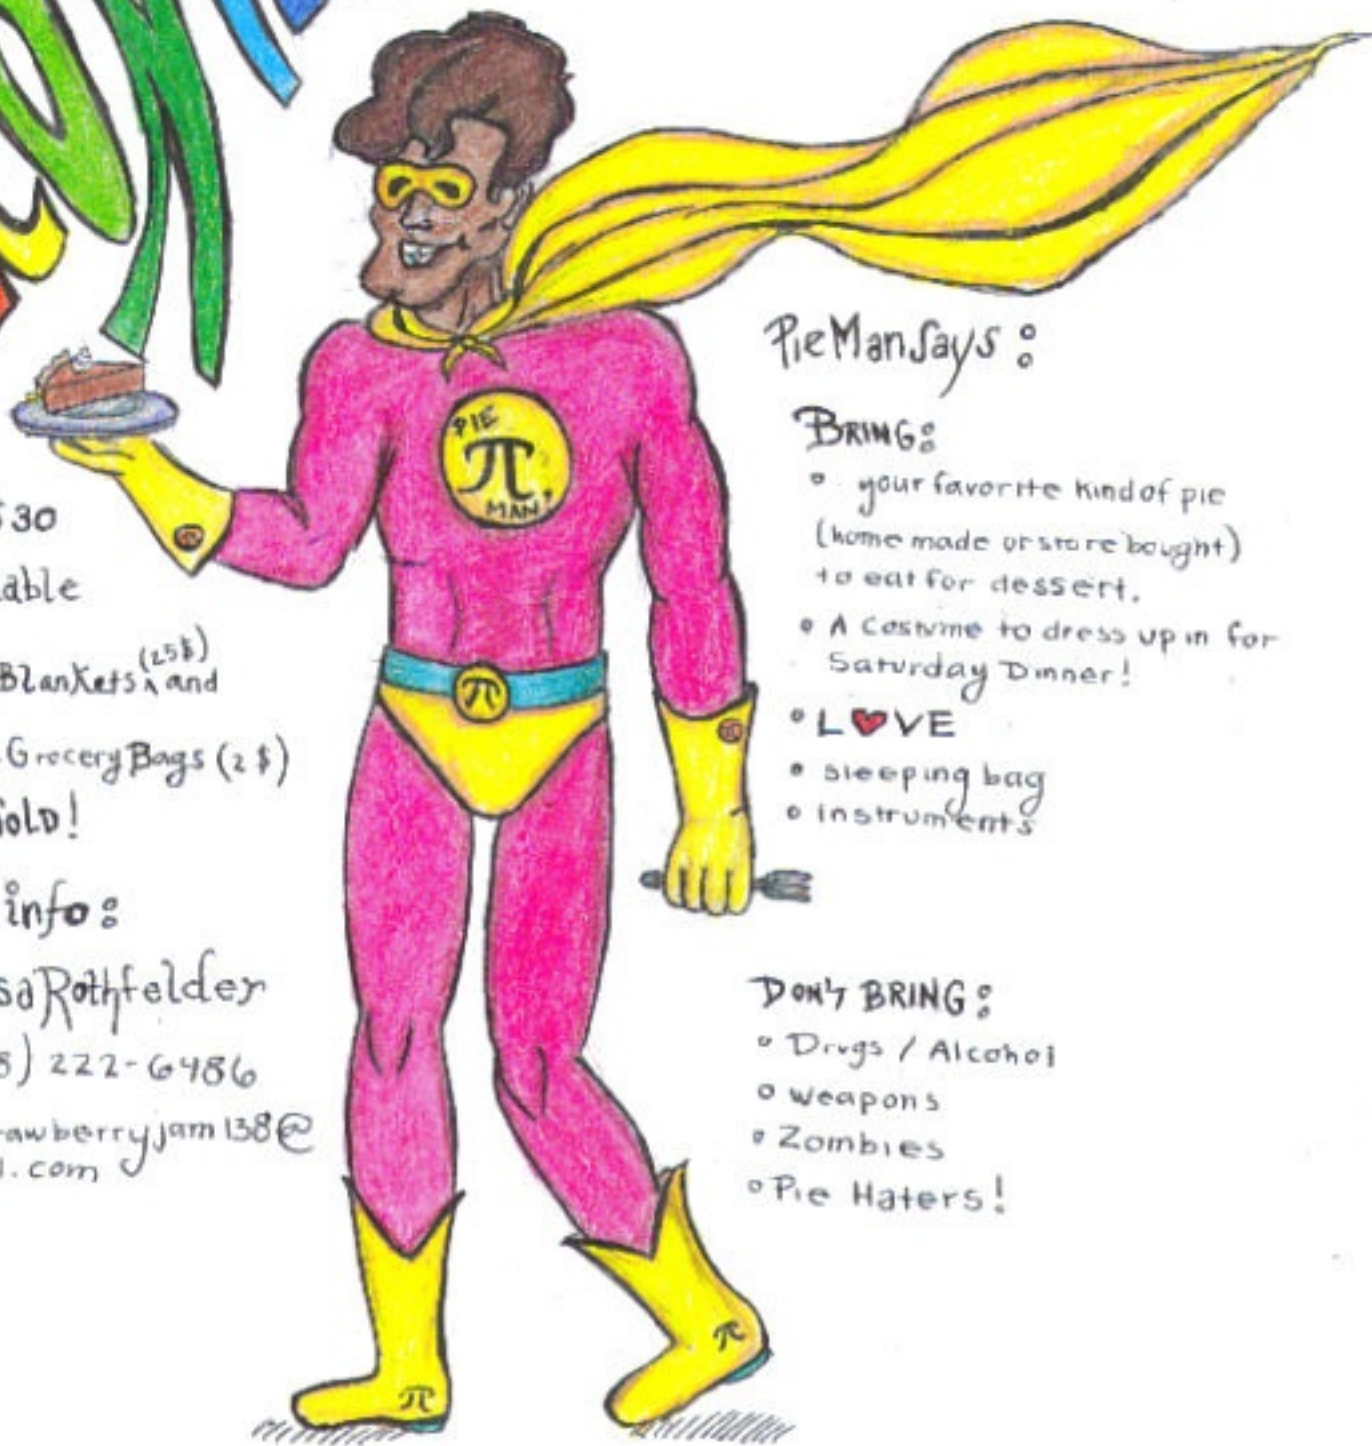 PIE
π
MAN!
π
π
π
30
able
Blankets (25$) and
Grocery Bags (2$)
SOLD!
info:
sa Rothfelder
8) 222-6486
rawberryjam138@
l.com
Pie Man Says:
BRING:
• your favorite kind of pie
(home made or store bought)
to eat for dessert.
• A Costume to dress up in for
Saturday Dinner!
• L♥VE
• sleeping bag
• instruments
DON'T BRING:
• Drugs / Alcohol
• weapons
• Zombies
• Pie Haters!